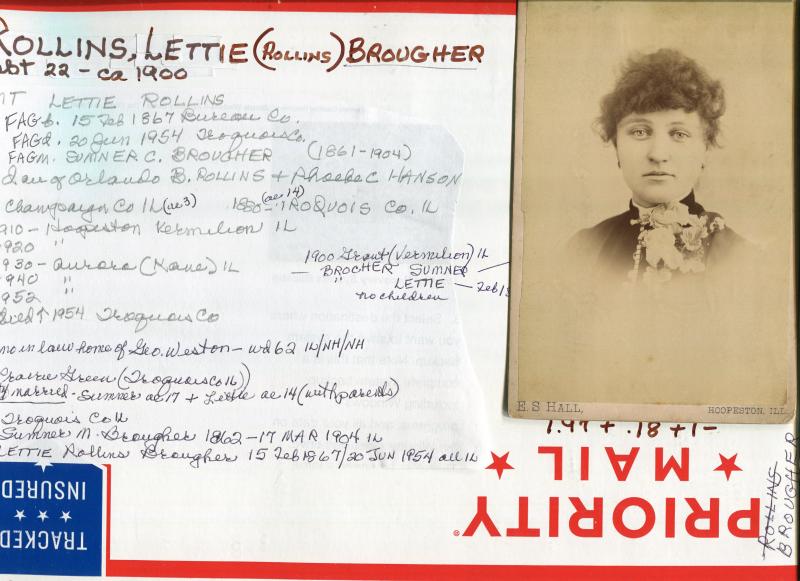 ROLLINS, LETTIE (ROLLINS) BROUGHER
22 - ca 1900
LETTIE ROLLINS
FAG b. 15 Feb 1867 Bureau Co.
FAG d. 20 Jun 1954 Iroquois Co.
FAG m. SUMNER C. BROUGHER (1861-1904)
dau of Orlando B. ROLLINS + Phoebe C HANSON
Champaign Co IL (ae 3) 1880 (ae 14) - IROQUOIS CO. IL
910 - Hoopeston Vermilion IL
920 "
930 - Aurora (Kane) IL
940 "
952
died 1954 Iroquois Co
1900 Grant (Vermilion) IL
- BROGHER SUMNER
" LETTIE - Feb
no children
in law home of Geo. Weston - wd 62 IL/NH/NH
Prairie Green (Iroquois Co IL)
married - Sumner ae 17 + Lettie ae 14 (with parents)
Iroquois Co IL
Sumner M. Brougher 1862 - 17 MAR 1904 IL
LETTIE Rollins Brougher 15 Feb 1867/20 JUN 1954 all IL
E. S HALL, HOOPESTON, ILL.
1.97 + .18 + 1-
PRIORITY
MAIL
®
TRACKED
INSURED
ROLLINS
BROUGHER